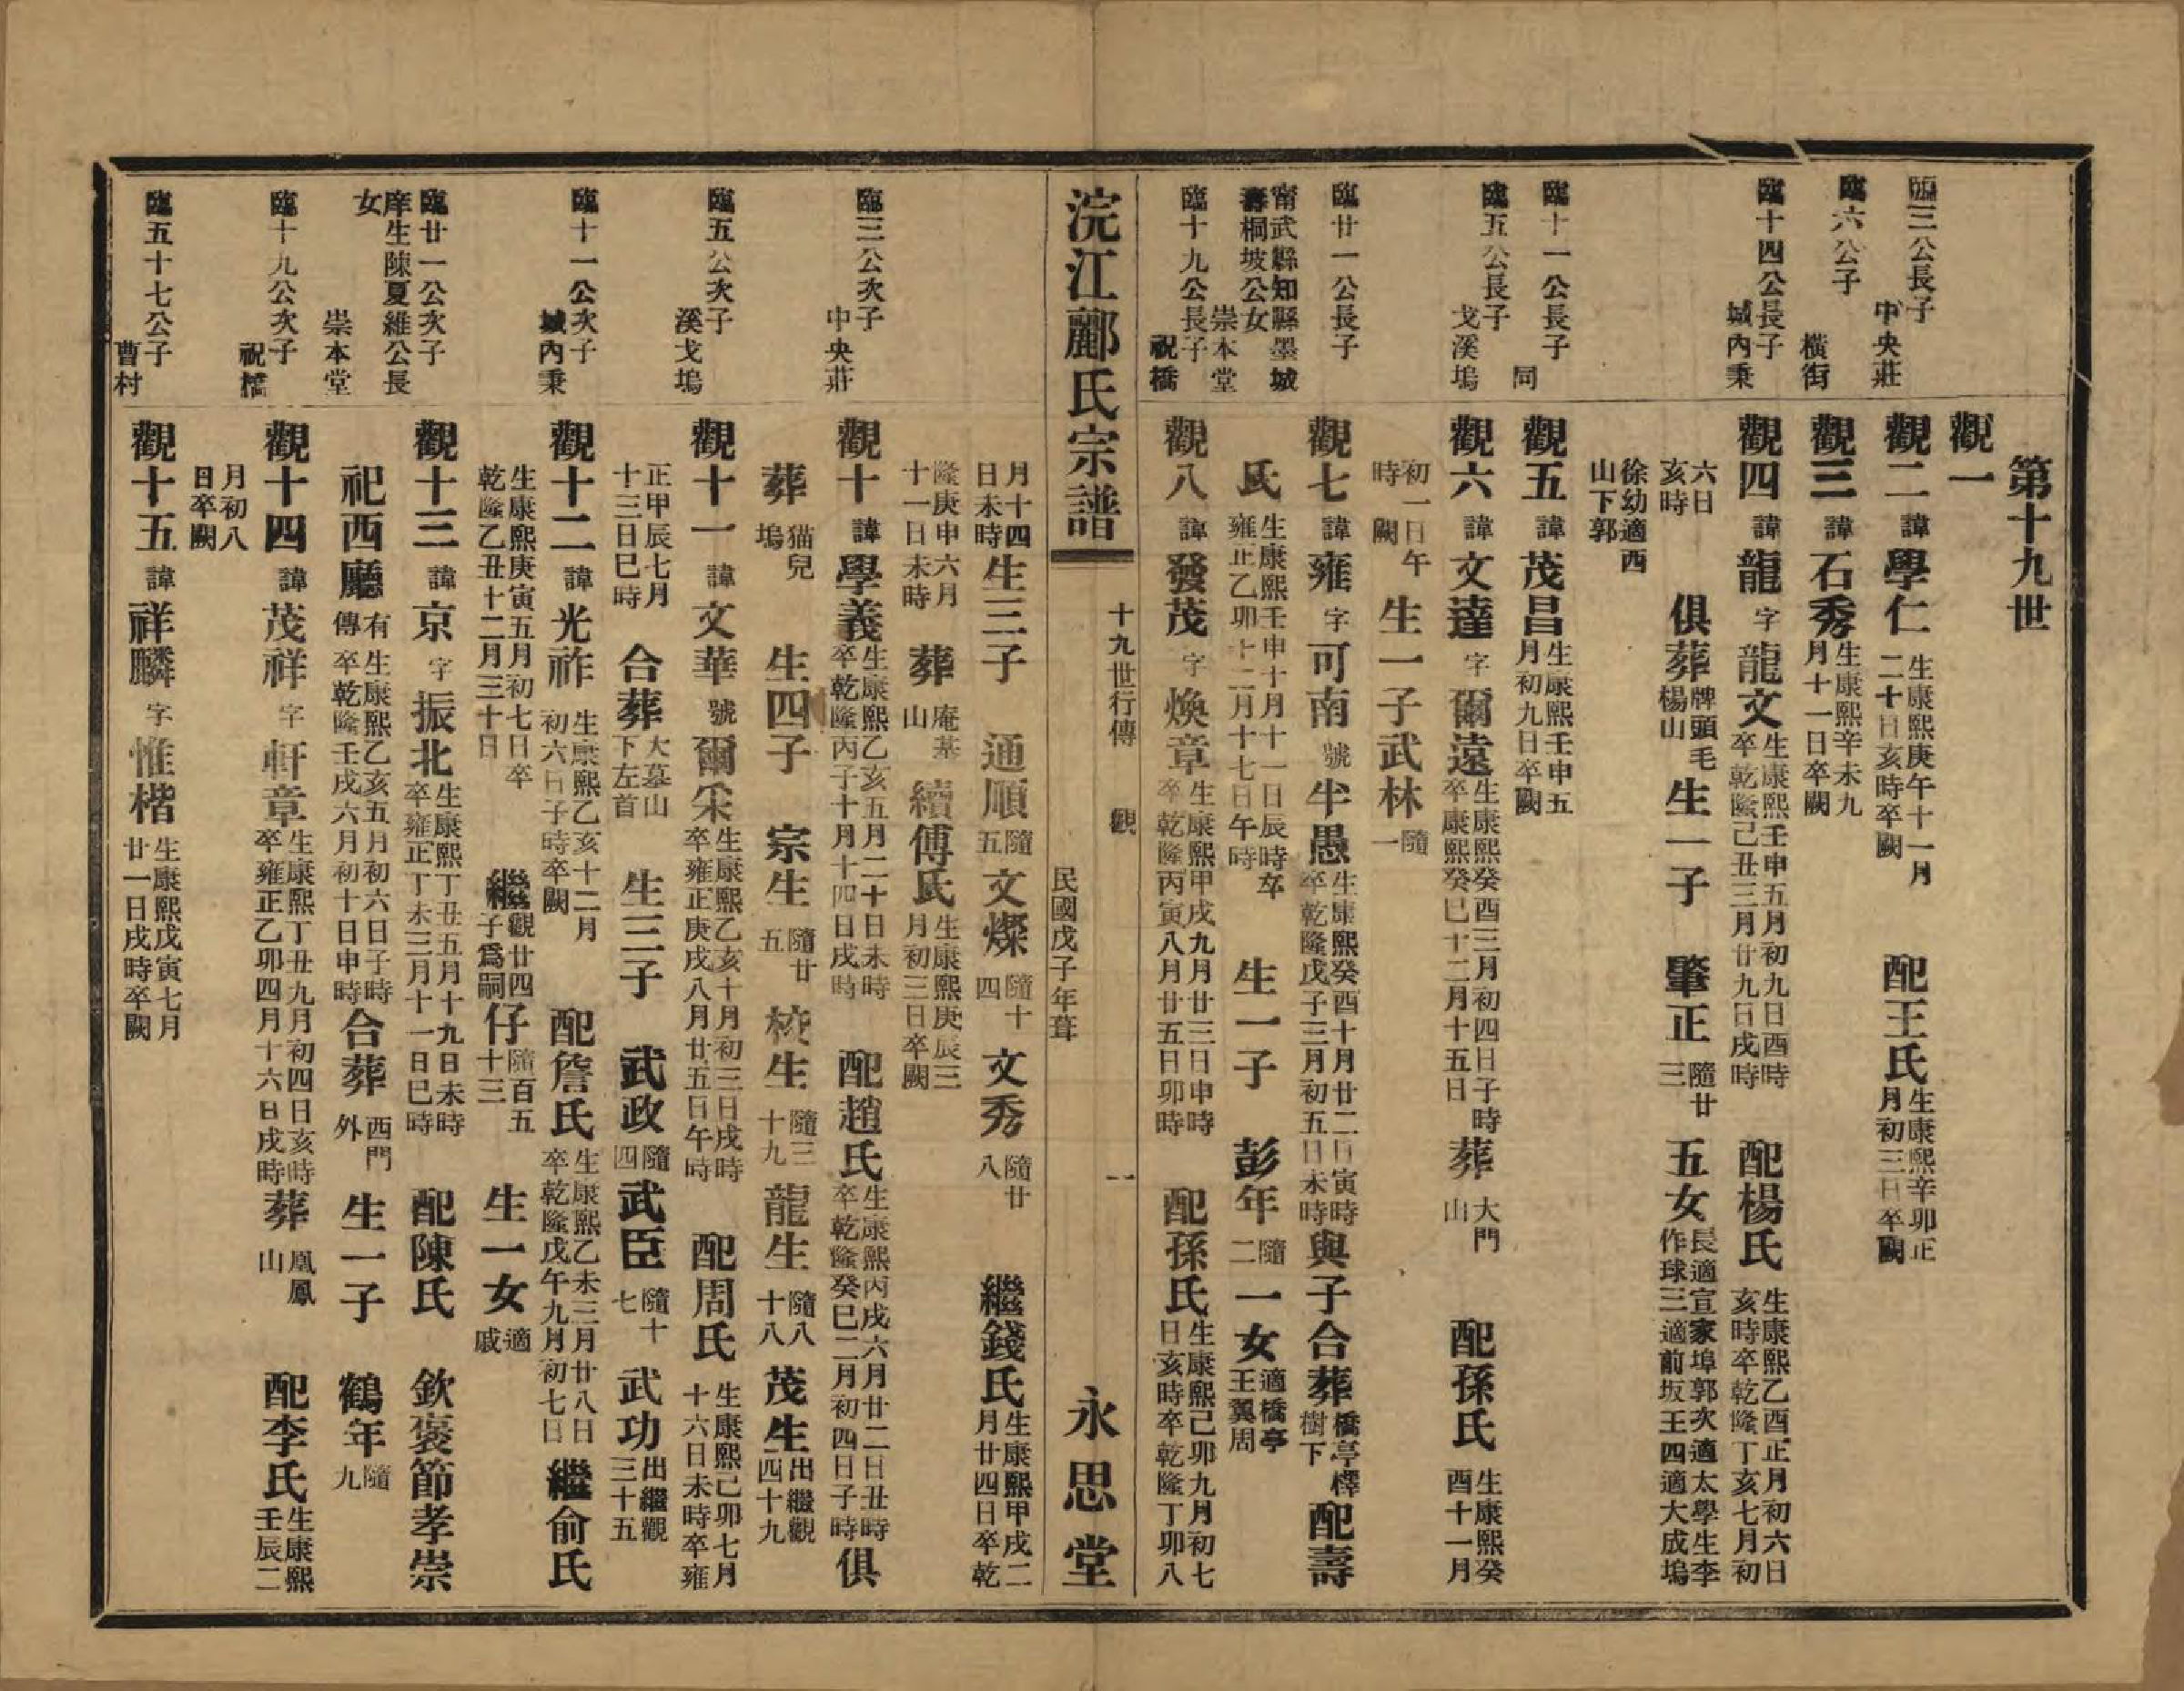 第十九世
觀一
臨三公長子
中央莊
觀二諱學仁
生康熙庚午十一月
二十日亥時卒闕
配王氏
生康熙辛卯正
月初三日卒闕
臨六公子
橫街
觀三諱石秀
生康熙辛未九
月十一日卒闕
臨十四公長子
城內秉
觀四諱龍字龍文
生康熙壬申五月初九日酉時
卒乾隆己丑三月廿九日戌時
配楊氏
生康熙乙酉正月初六日
亥時卒乾隆丁亥七月初
六日
亥時
俱葬
牌頭毛
楊山
生一子
肇正
隨廿
三
五女
長適宣家埠郭次適太學生李
作球三適前坂王四適大成塢
徐幼適西
山下郭
臨十一公長子
同
觀五諱茂昌
生康熙壬申五
月初九日卒闕
臨五公長子
戈溪塢
觀六諱文達字爾遠
生康熙癸酉三月初四日子時
卒康熙癸巳十二月十五日
葬
大門
山
配孫氏
生康熙癸
酉十一月
初一日午
時闕
生一子武林
隨
一
臨廿一公長子
觀七諱雍字可南號半愚
生康熙癸酉十月廿二日寅時
卒乾隆戊子三月初五日未時
與子合葬
橋亭檡
樹下
配壽
甯武縣知縣墨城
壽桐坡公女
崇本堂
氏
生康熙壬申十月十一日辰時卒
雍正乙卯十二月十七日午時
生一子
彭年
隨
二
一女
適橋亭
王翼周
臨十九公長子
祝橋
觀八諱發茂字煥章
生康熙甲戌九月廿三日申時
卒乾隆丙寅八月廿五日卯時
配孫氏
生康熙己卯九月初七
日亥時卒乾隆丁卯八
浣江酈氏宗譜
十九世行傳
觀
一
民國戊子年葺
永思堂
月十四
日未時
生三子
通順
隨
五
文燦
隨十
四
文秀
隨廿
八
繼錢氏
生康熙甲戌二
月廿四日卒乾
隆庚申六月
十一日未時
葬
庵基
山
續傅氏
生康熙庚辰三
月初三日卒闕
臨三公次子
中央莊
觀十諱學義
生康熙乙亥五月二十日未時
卒乾隆丙子十月十四日戌時
配趙氏
生康熙丙戌六月廿二日丑時
卒乾隆癸巳二月初四日子時
俱
葬
猫兒
塢
生四子
宗生
隨廿
五
校生
隨三
十九
龍生
隨八
十八
茂生
出繼觀
四十九
臨五公次子
溪戈塢
觀十一諱文華號爾采
生康熙乙亥十月初三日戌時
卒雍正庚戌八月廿五日午時
配周氏
生康熙己卯七月
十六日未時卒雍
正甲辰七月
十三日巳時
合葬
大墓山
下左首
生三子
武政
隨
四
武臣
隨十
七
武功
出繼觀
三十五
臨十一公次子
城內秉
觀十二諱光祚
生康熙乙亥十二月
初六日子時卒闕
配詹氏
生康熙乙未三月廿八日
卒乾隆戊午九月初七日
繼俞氏
生康熙庚寅五月初七日卒
乾隆乙丑十二月三十日
繼
觀廿四
子爲嗣
仔
隨百五
十三
生一女
適
戚
臨廿一公次子
觀十三諱京字振北
生康熙丁丑五月十九日未時
卒雍正丁未三月十一日巳時
配陳氏
欽褒節孝崇
庠生陳夏維公長
女
崇本堂
祀西廳
有
傳
生康熙乙亥五月初六日子時
卒乾隆壬戌六月初十日申時
合葬
西門
外
生一子
鶴年
隨
九
臨十九公次子
祝橋
觀十四諱茂祥字軒章
生康熙丁丑九月初四日亥時
卒雍正乙卯四月十六日戌時
葬
凰鳳
山
配李氏
生康熙
壬辰二
月初八
日卒闕
臨五十七公子
曹村
觀十五諱祥麟字惟楷
生康熙戊寅七月
廿一日戌時卒闕